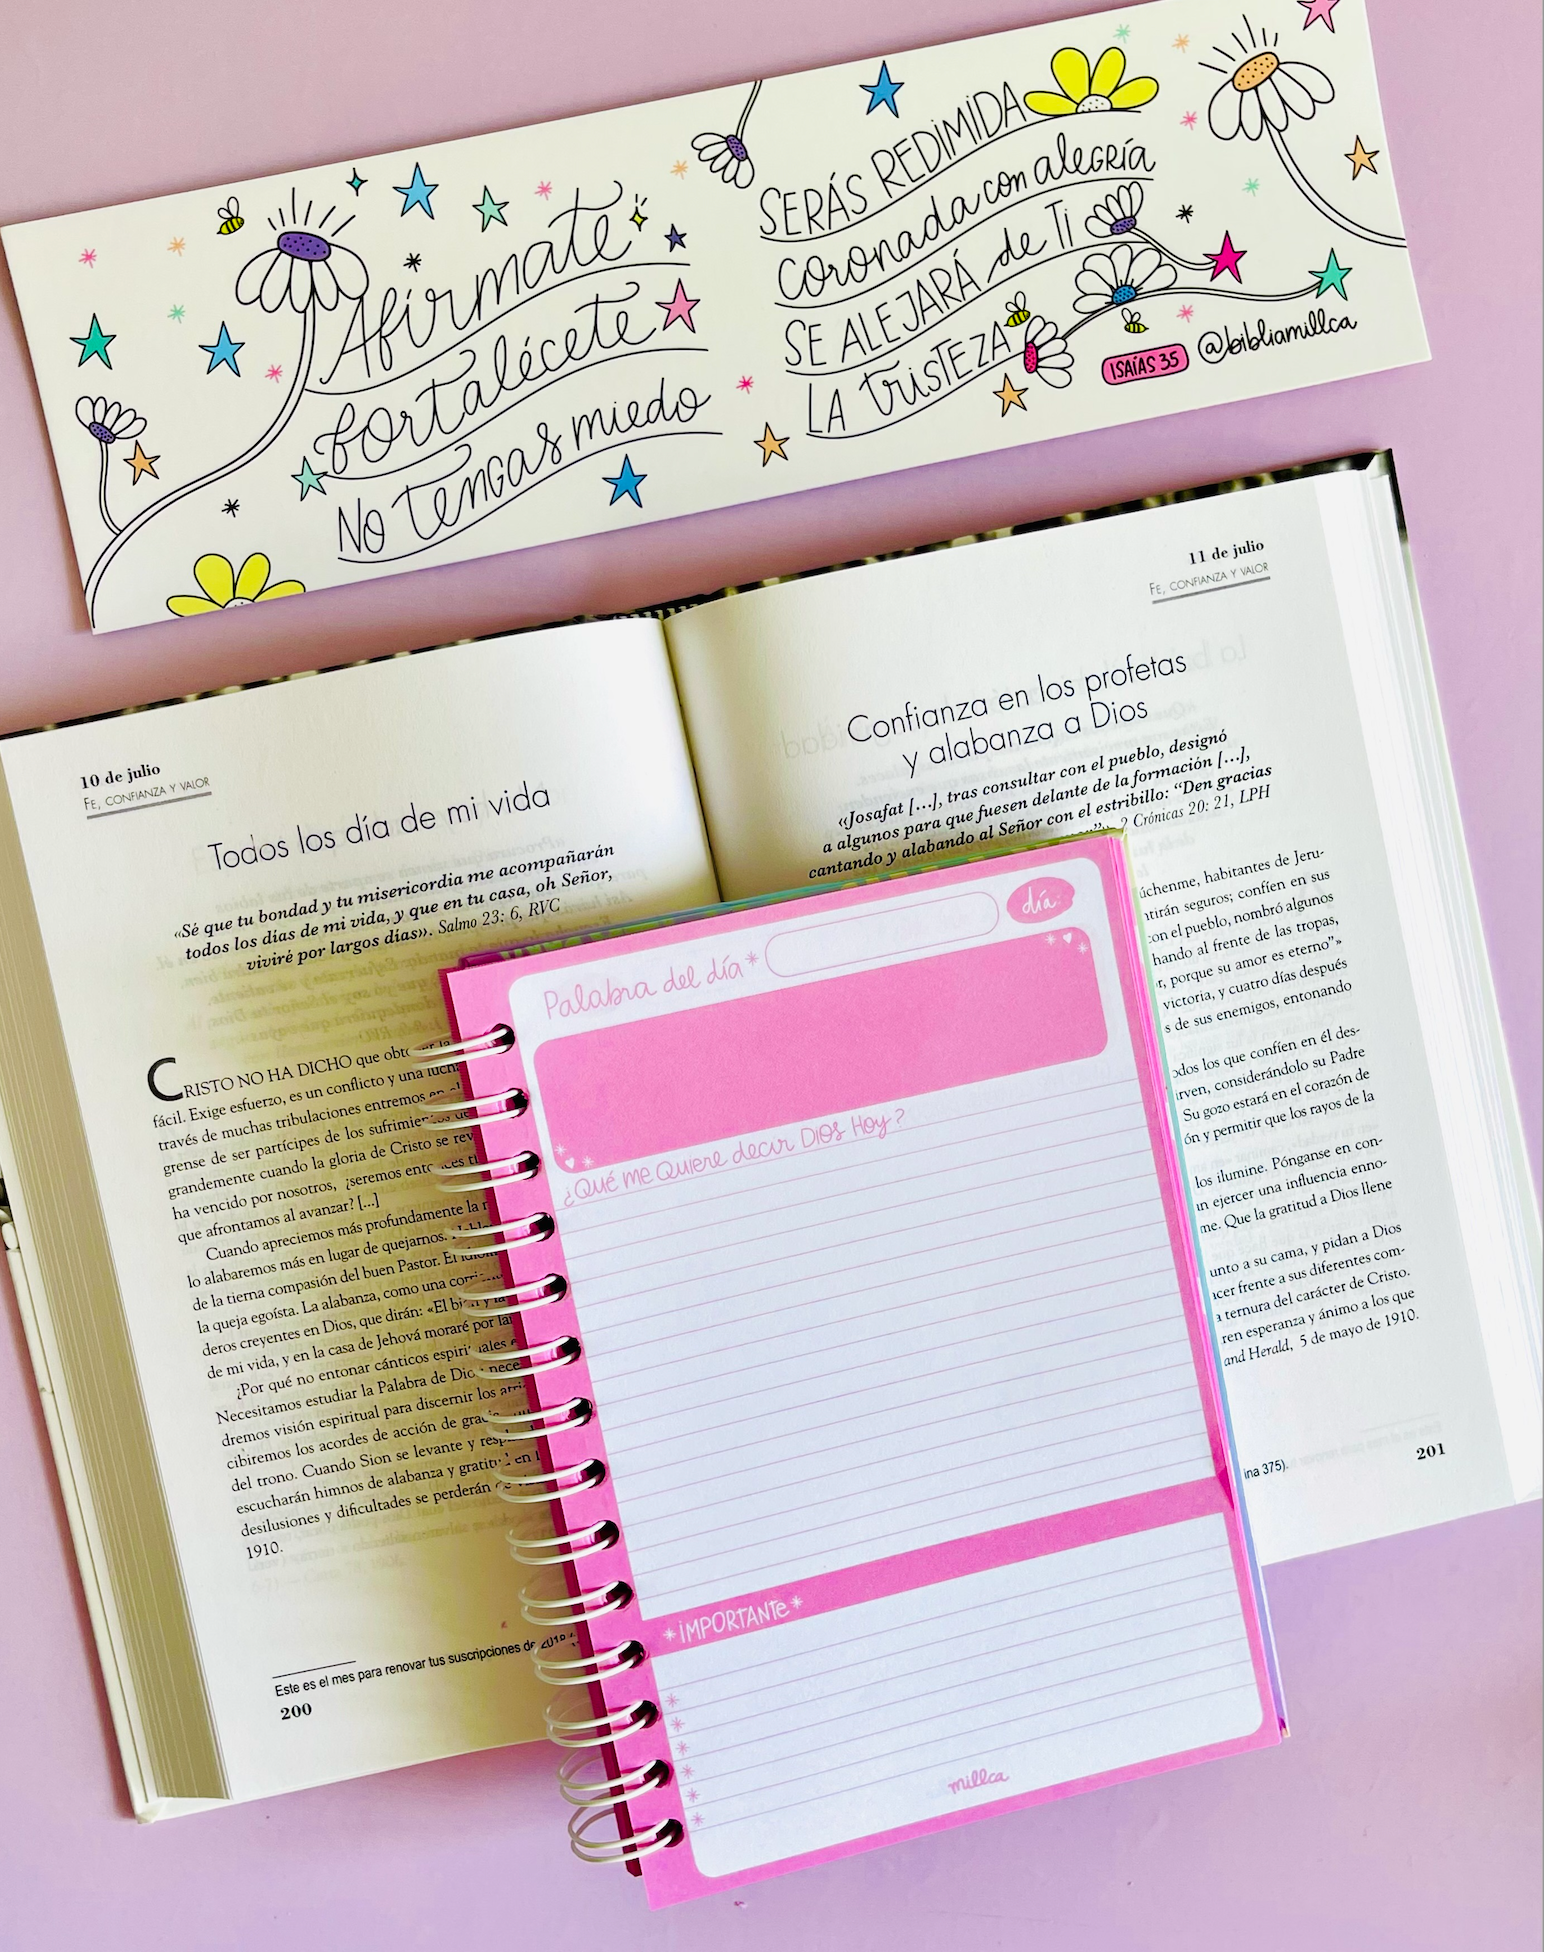 Afírmate
fortalécete
No tengas miedo
SERÁS REDIMIDA
coronada con alegría
SE ALEJARÁ de Ti
LA TRISTEZA
ISAÍAS 35
@bibliamillca
10 de julio
FE, CONFIANZA Y VALOR
Todos los día de mi vida
«Sé que tu bondad y tu misericordia me acompañarán
todos los días de mi vida, y que en tu casa, oh Señor,
viviré por largos días». Salmo 23: 6, RVC
CRISTO NO HA DICHO que
fácil. Exige esfuerzo, es un conflicto y una
través de muchas tribulaciones entremos
grense de ser partícipes de los
grandemente cuando la gloria de Cristo se
ha vencido por nosotros, ¿seremos entonces
que afrontamos al avanzar? [...]
Cuando apreciemos más profundamente la
lo alabaremos más en lugar de quejarnos.
de la tierna compasión del buen Pastor. El
la queja egoísta. La alabanza, como una
deros creyentes en Dios, que dirán: «El bien y la
de mi vida, y en la casa de Jehová moraré por
¿Por qué no entonar cánticos espirituales
Necesitamos estudiar la Palabra de Dios
dremos visión espiritual para discernir los
cibiremos los acordes de acción de
del trono. Cuando Sion se levante y
escucharán himnos de alabanza y gratitud en
desilusiones y dificultades se perderán
1910.
Este es el mes para renovar tus suscripciones de 2018
200
11 de julio
FE, CONFIANZA Y VALOR
Confianza en los profetas
y alabanza a Dios
«Josafat [...], tras consultar con el pueblo, designó
a algunos para que fuesen delante de la formación [...],
cantando y alabando al Señor con el estribillo: “Den gracias
2 Crónicas 20: 21, LPH
úchenme, habitantes de Jeru-
ntirán seguros; confíen en sus
con el pueblo, nombró algunos
hando al frente de las tropas,
r, porque su amor es eterno”»
victoria, y cuatro días después
s de sus enemigos, entonando
odos los que confíen en él des-
irven, considerándolo su Padre
Su gozo estará en el corazón de
ón y permitir que los rayos de la
los ilumine. Pónganse en con-
un ejercer una influencia enno-
me. Que la gratitud a Dios llene
unto a su cama, y pidan a Dios
acer frente a sus diferentes com-
a ternura del carácter de Cristo.
ren esperanza y ánimo a los que
and Herald, 5 de mayo de 1910.
ina 375).
201
Palabra del día*
día:
¿Qué me quiere decir Dios hoy?
*IMPORTANTE*
millca